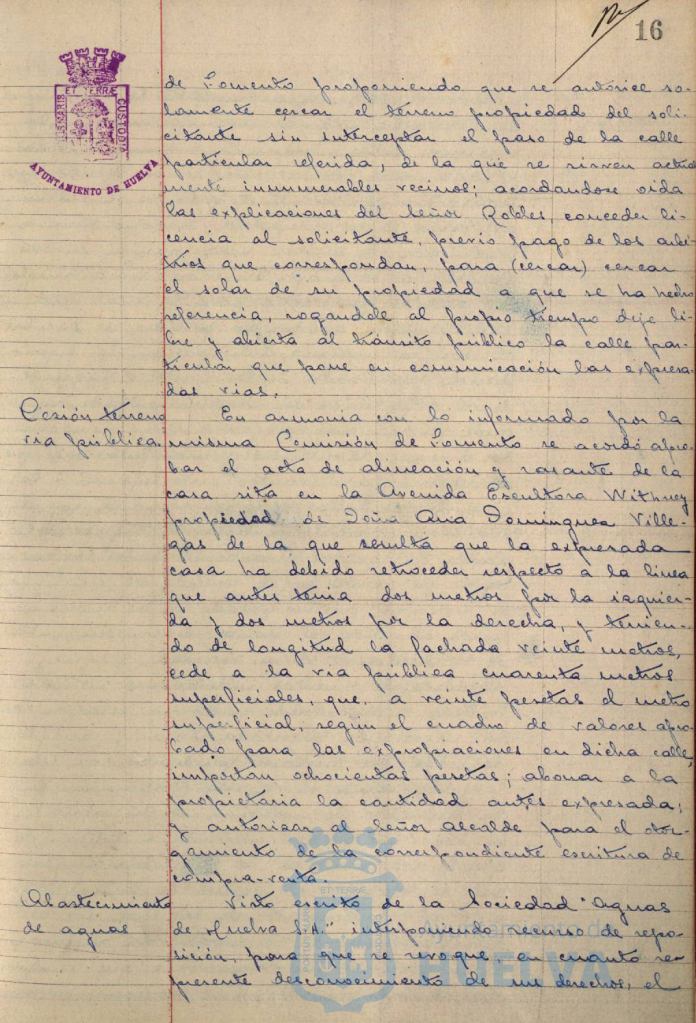 16
PORTUS MARIS ET TERRÆ CUSTODIA
AYUNTAMIENTO DE HUELVA
de Fomento proponiendo que se autorice so-
lamente cercar el terreno propiedad del soli-
citante sin interceptar el paso de la calle
particular referida, de la que se sirven actual
mente innumerables vecinos; acordandose oida
las explicaciones del Señor Robles, conceder li-
cencia al solicitante, previo pago de los arbi-
trios que correspondan, para (cercar) cercar
el solar de su propiedad a que se ha hecho
referencia, rogandole al propio tiempo deje li-
bre y abierta al tránsito público la calle par-
ticular que pone en comunicación las expresa-
das vias.
Cesión terreno
via pública.
En armonia con lo informado por la
misma Comisión de Fomento se acordó apro-
bar el acta de alineación y rasante de la
casa sita en la Avenida Escultora Withney
propiedad de Doña Ana Dominguez Ville-
gas de la que resulta que la expresada
casa ha debido retroceder respecto a la linea
que antes tenia dos metros por la izquier-
da y dos metros por la derecha, y tenien-
do de longitud la fachada veinte metros,
cede a la via pública cuarenta metros
superficiales, que, a veinte pesetas el metro
superficial, según el cuadro de valores apro-
bado para las expropiaciones en dicha calle,
importan ochocientas pesetas; abonar a la
propietaria la cantidad antes expresada;
y autorizar al Señor Alcalde para el otor-
gamiento de la correspondiente escritura de
compra-venta.
Abastecimiento
de aguas
Visto escrito de la Sociedad "Aguas
de Huelva S.A." interponiendo recurso de repo-
sición, para que se revoque, en cuanto re-
presente desconocimiento de sus derechos, el
Ayuntamiento de
HUELVA